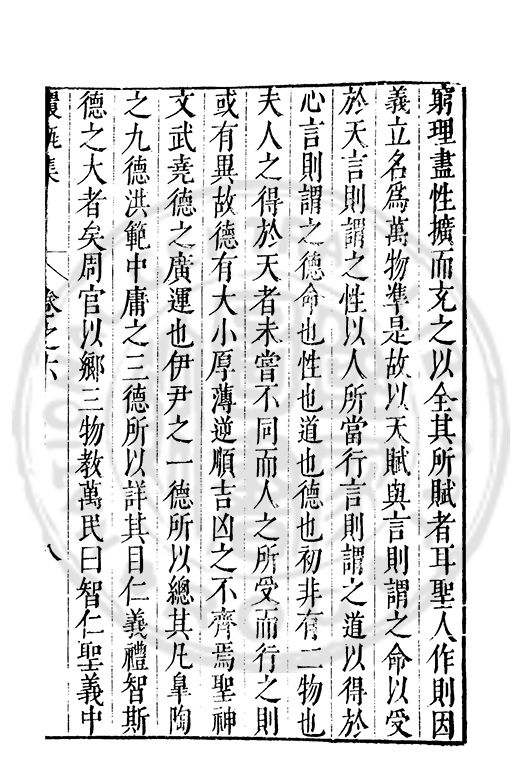 窮理盡性擴而充之以全其所賦者耳聖人作則因
義立名爲萬物準是故以天賦與言則謂之命以受
於天言則謂之性以人所當行言則謂之道以得於
心言則謂之德命也性也道也德也初非有二物也
夫人之得於天者未嘗不同而人之所受而行之則
或有異故德有大小厚薄逆順吉凶之不齊焉聖神
文武堯德之廣運也伊尹之一德所以總其凡皐陶
之九德洪範中庸之三德所以詳其目仁義禮智斯
德之大者矣周官以鄉三物教萬民曰智仁聖義中
集 卷之六 八